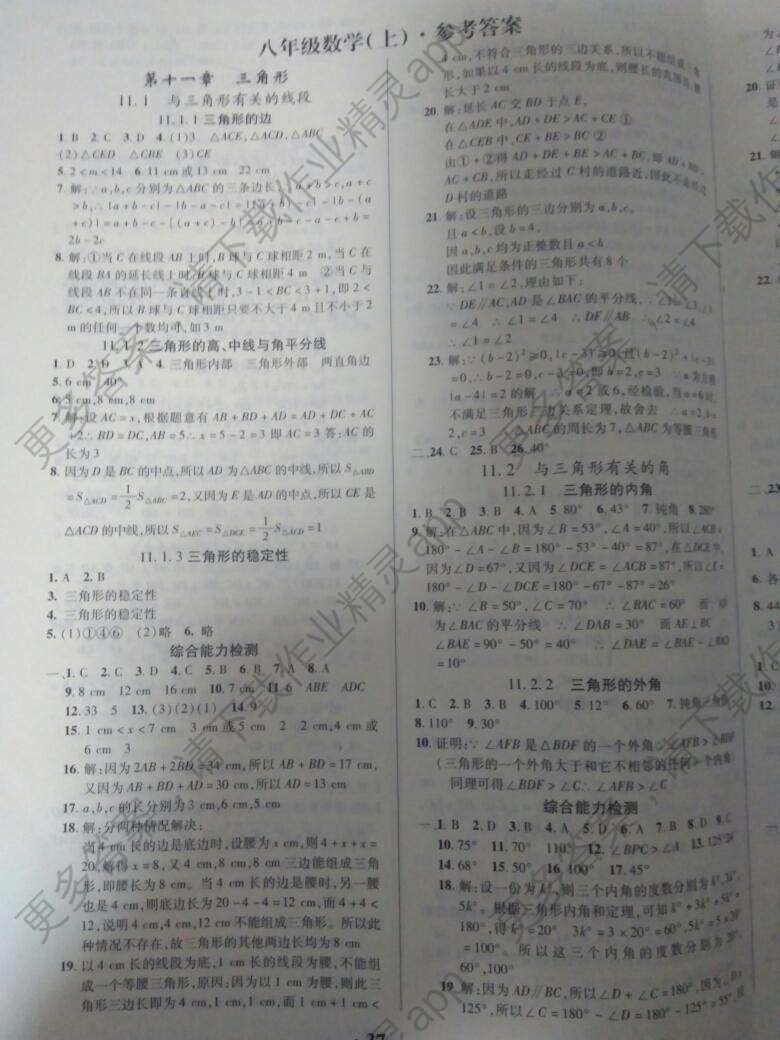 八年级数学(上)·参考答案
第十一章 三角形
11.1 与三角形有关的线段
11.1.1 三角形的边
1. B 2. C 3. D 4. (1)3 △ACE,△ACD,△ABC
(2)△CED △CBE (3)△CED
5. 2<m<14 6. 11 cm或13 cm 22 cm
7. 解:∵a,b,c分别为△ABC的三条边长
2b-2c
8. 解:①当C在线段AB上时,B球与C球相距2 m,当C在
线段BA的延长线上时,B球与C球相距4 m ②当C与
线段AB不在同一条直线上时,3-1<BC<3+1,即2<
BC<4,所以B球与C球相距只要不大于4 m且不小于2
m的任何一个数均可,如3 m
11.1.2 三角形的高、中线与角平分线
1. D 2. D 4. 三角形内部 三角形外部 两直角边
5. 6 cm 40°
6. 3 cm,8 cm,8 cm
7. 解:设AC=x,根据题意有AB+BD+AD=AD+DC+AC
+2∴BD=DC,AB=5∴x=5-2=3 即AC=3 答:AC的
长为3
8. 因为D是BC的中点,所以AD为△ABC的中线,所以S△ABD
=S△ACD=1/2S△ABC=2,又因为E是AD的中点,所以CE是
△ACD的中线,所以S△AEC=S△DCE=1/2S△ACD=1
11.1.3 三角形的稳定性
1. A 2. B
3. 三角形的稳定性
4. 三角形的稳定性
5. (1)①④⑥ (2)略 6. 略
综合能力检测
一、1. C 2. C 3. D 4. C 5. B 6. B 7. A 8. A
9. 8 cm 12 cm 16 cm 10. 7 cm 11. 6 ABE ADC
12. 33 5 13. (3)(2)(1) 14. 9
15. 1 cm<x<7 cm 3 cm或5 cm 2 2 cm,4 cm或
6 cm 3
16. 解:因为2AB+2BD=34 cm,所以AB+BD=17 cm,
又因为AB+BD+AD=30 cm,所以AD=13 cm
17. a,b,c的长分别为3 cm,6 cm,5 cm
18. 解:分两种情况解决:
当4 cm长的边是底边时,设腰为x cm,则4+x+x=
20,解得x=8,又4 cm,8 cm,8 cm三边能组成三角
形,即腰长为8 cm。当4 cm长的边是腰时,另一腰
也是4 cm,则底边长为20-4-4=12 cm,而4+4<
12,说明4 cm,4 cm,12 cm不能组成三角形。所以此
种情况不存在,故三角形的其他两边长均为8 cm
19. 以4 cm长的线段为底,1 cm长的线段为腰,不能组
成一个等腰三角形,原因:因为以1 cm为腰长,则此三
角形三边长即为4 cm,1 cm,1 cm,而1 cm+1 cm<
4 cm,不符合三角形的三边关系,所以不能组成三角
形,如果以4 cm长的线段为底,则腰长的范围为,腰
长大于2 cm
20. 解:延长AC交BD于点E,
在△ADE中,AD+DE>AC+CE ①
在△CEB中,CE+BE>BC ②
由①+②得AD+DE+BE>AC+BC,即AD+BD>
AC+CB,所以走经过C村的道路近,因此不走经过
D村的道路
21. 解:设三角形的三边分别为a,b,c,
且a<b,设b=4,
因a,b,c均为正整数且a<b
因此满足条件的三角形共有8个
22. 解:∠1=∠2,理由如下:
∵DE∥AC,AD是∠BAC的平分线
23. 解:∵(b-2)²≥0,|c-3|≥0 (b-2)²+|c-3|
=0,∴b-2=0,c-3=0,即b=2,c=3 ∵a为方程
|a-4|=2的解 ∴a=2或6,经检验,当a=6时,
不满足三角形三边关系定理,故舍去 ∴a=2,b=
2,c=3 ∴△ABC的周长为7,△ABC为等腰三角形
二、24. C 25. B 26. 40°
11.2 与三角形有关的角
11.2.1 三角形的内角
1. B 2. C 3. B 4. A 5. 80° 6. 43° 7. 钝角 8. 280°
9. 解:在△ABC中,因为∠B=53°,∠A=40°,所以∠ACB=
180°-∠A-∠B=180°-53°-40°=87°,在△DCE中,
因为∠D=67°,又因为∠DCE=∠ACB=87°,所以∠E=
180°-∠D-∠DCE=180°-67°-87°=26°
10. 解:∵∠B=50°,∠C=70° ∴∠BAC=60° 而AD
为∠BAC的平分线 ∴∠DAB=30° 而AE⊥BC
∴∠BAE=90°-50°=40° ∴∠DAE=∠BAE-∠BAD
=10°
11.2.2 三角形的外角
1. C 2. B 3. B 4. 100° 5. 12° 6. 60° 7. 钝角三角形
8. 110° 9. 30°
10. 证明:∵∠AFB是△BDF的一个外角 ∴∠AFB>∠BDF
(三角形的一个外角大于和它不相邻的任何一个内角)
同理可得∠BDF>∠C ∴∠AFB>∠C
综合能力检测
一、1. B 2. D 3. B 4. A 5. D 6. B 7. B 8. B 9. C
10. 75° 11. 70° 110° 12. ∠BPC>∠A 13. 125°
14. 68° 15. 50° 16. 100° 17. 45°
18. 解:设一份为k°,则三个内角的度数分别为k°,3k°,
5k°。根据三角形内角和定理,可知k°+3k°+5k°=
180°,得k°=20° 3k°=3×20°=60°,5k°=
=100°。所以这三个内角的度数分别为20°,
60°,100°
19. 解:因为AD∥BC,所以∠D+∠C=180°,因为∠D=
125°,所以∠C=180°-∠D=180°-125°=55°,因
37
更多答案 请下载作业精灵app